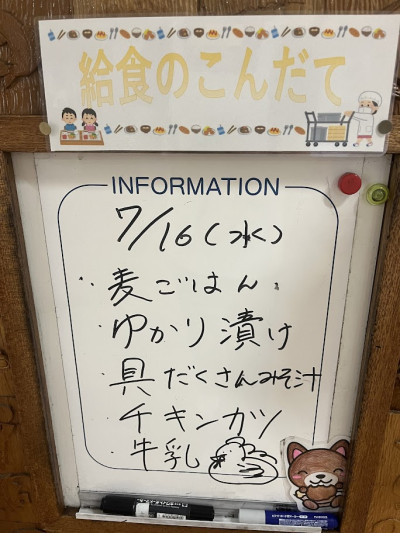 給食のこんだて
INFORMATION
7/16(水)
・麦ごはん
・ゆかり漬け
・具だくさんみそ汁
・チキンカツ
・牛乳